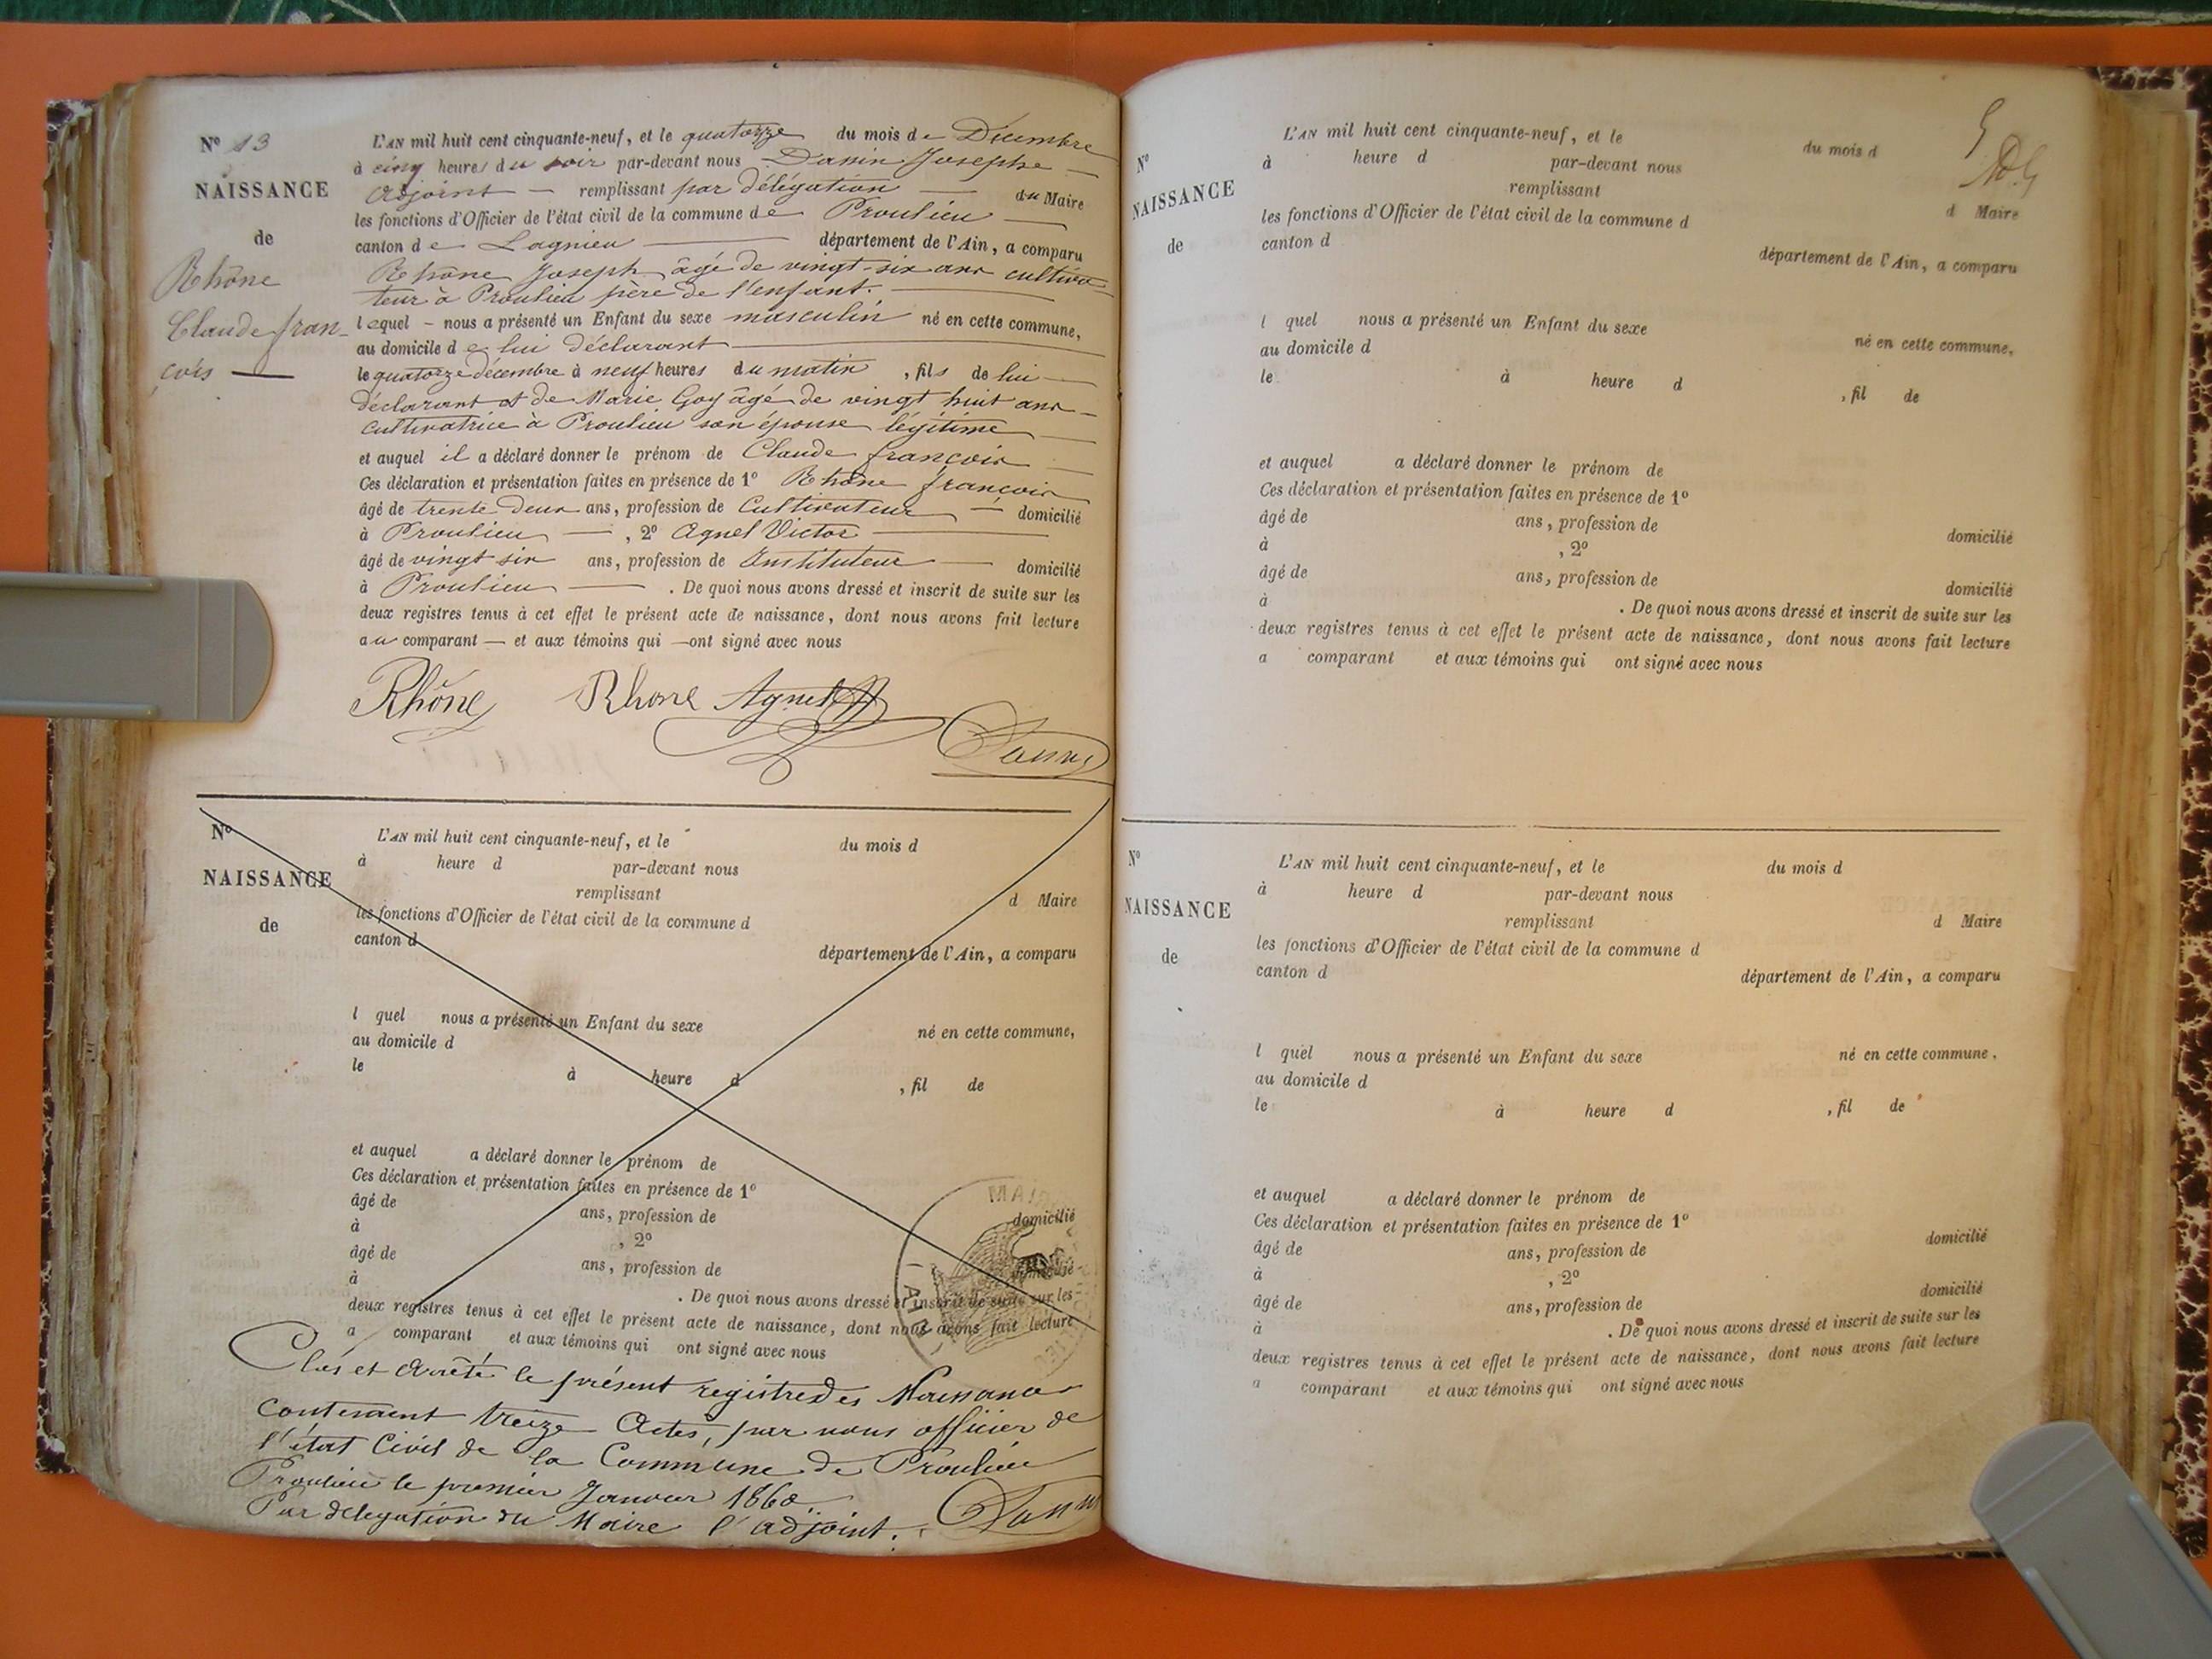 N° 13
NAISSANCE
de
Rhône
Claude fran-
cois
L'AN mil huit cent cinquante-neuf, et le quatorze du mois de Décembre
à cinq heures du soir par-devant nous Danin Josephe
Adjoint remplissant par délégation du Maire
les fonctions d'Officier de l'état civil de la commune de Proulieu
canton de Lagnieu département de l'Ain, a comparu
Rhône Joseph âgé de vingt-six ans cultiva-
teur à Proulieu père de l'enfant.
lequel nous a présenté un Enfant du sexe masculin né en cette commune,
au domicile de lui déclarant
le quatorze décembre à neuf heures du matin, fils de lui
déclarant et de Marie Goy âgé de vingt huit ans
cultivatrice à Proulieu son épouse légitime
et auquel il a déclaré donner le prénom de Claude françois
Ces déclaration et présentation faites en présence de 1° Rhône françois
âgé de trente deux ans, profession de Cultivateur domicilié
à Proulieu, 2° Agnel Victor
âgé de vingt six ans, profession de Instituteur domicilié
à Proulieu. De quoi nous avons dressé et inscrit de suite sur les
deux registres tenus à cet effet le présent acte de naissance, dont nous avons fait lecture
au comparant et aux témoins qui ont signé avec nous
Rhône Rhone Agnel Danin
N°
NAISSANCE
de
L'AN mil huit cent cinquante-neuf, et le du mois d
à heure d par-devant nous
remplissant d Maire
les fonctions d'Officier de l'état civil de la commune d
canton d département de l'Ain, a comparu
l quel nous a présenté un Enfant du sexe né en cette commune,
au domicile d
le à heure d , fil de
et auquel a déclaré donner le prénom de
Ces déclaration et présentation faites en présence de 1°
âgé de ans, profession de domicilié
à , 2°
âgé de ans, profession de domicilié
à . De quoi nous avons dressé et inscrit de suite sur les
deux registres tenus à cet effet le présent acte de naissance, dont nous avons fait lecture
a comparant et aux témoins qui ont signé avec nous
Clos et Arrêté le présent registre des Naissances
contenant treize Actes, par nous officier de
l'état Civil de la Commune de Proulieu
Proulieu le premier Janvier 1860
Par delegation du Maire l'adjoint. Danin
N°
NAISSANCE
de
L'AN mil huit cent cinquante-neuf, et le du mois d
à heure d par-devant nous
remplissant d Maire
les fonctions d'Officier de l'état civil de la commune d
canton d département de l'Ain, a comparu
l quel nous a présenté un Enfant du sexe né en cette commune,
au domicile d
le à heure d , fil de
et auquel a déclaré donner le prénom de
Ces déclaration et présentation faites en présence de 1°
âgé de ans, profession de domicilié
à , 2°
âgé de ans, profession de domicilié
à . De quoi nous avons dressé et inscrit de suite sur les
deux registres tenus à cet effet le présent acte de naissance, dont nous avons fait lecture
a comparant et aux témoins qui ont signé avec nous
N°
NAISSANCE
de
L'AN mil huit cent cinquante-neuf, et le du mois d
à heure d par-devant nous
remplissant d Maire
les fonctions d'Officier de l'état civil de la commune d
canton d département de l'Ain, a comparu
l quel nous a présenté un Enfant du sexe né en cette commune,
au domicile d
le à heure d , fil de
et auquel a déclaré donner le prénom de
Ces déclaration et présentation faites en présence de 1°
âgé de ans, profession de domicilié
à , 2°
âgé de ans, profession de domicilié
à . De quoi nous avons dressé et inscrit de suite sur les
deux registres tenus à cet effet le présent acte de naissance, dont nous avons fait lecture
a comparant et aux témoins qui ont signé avec nous